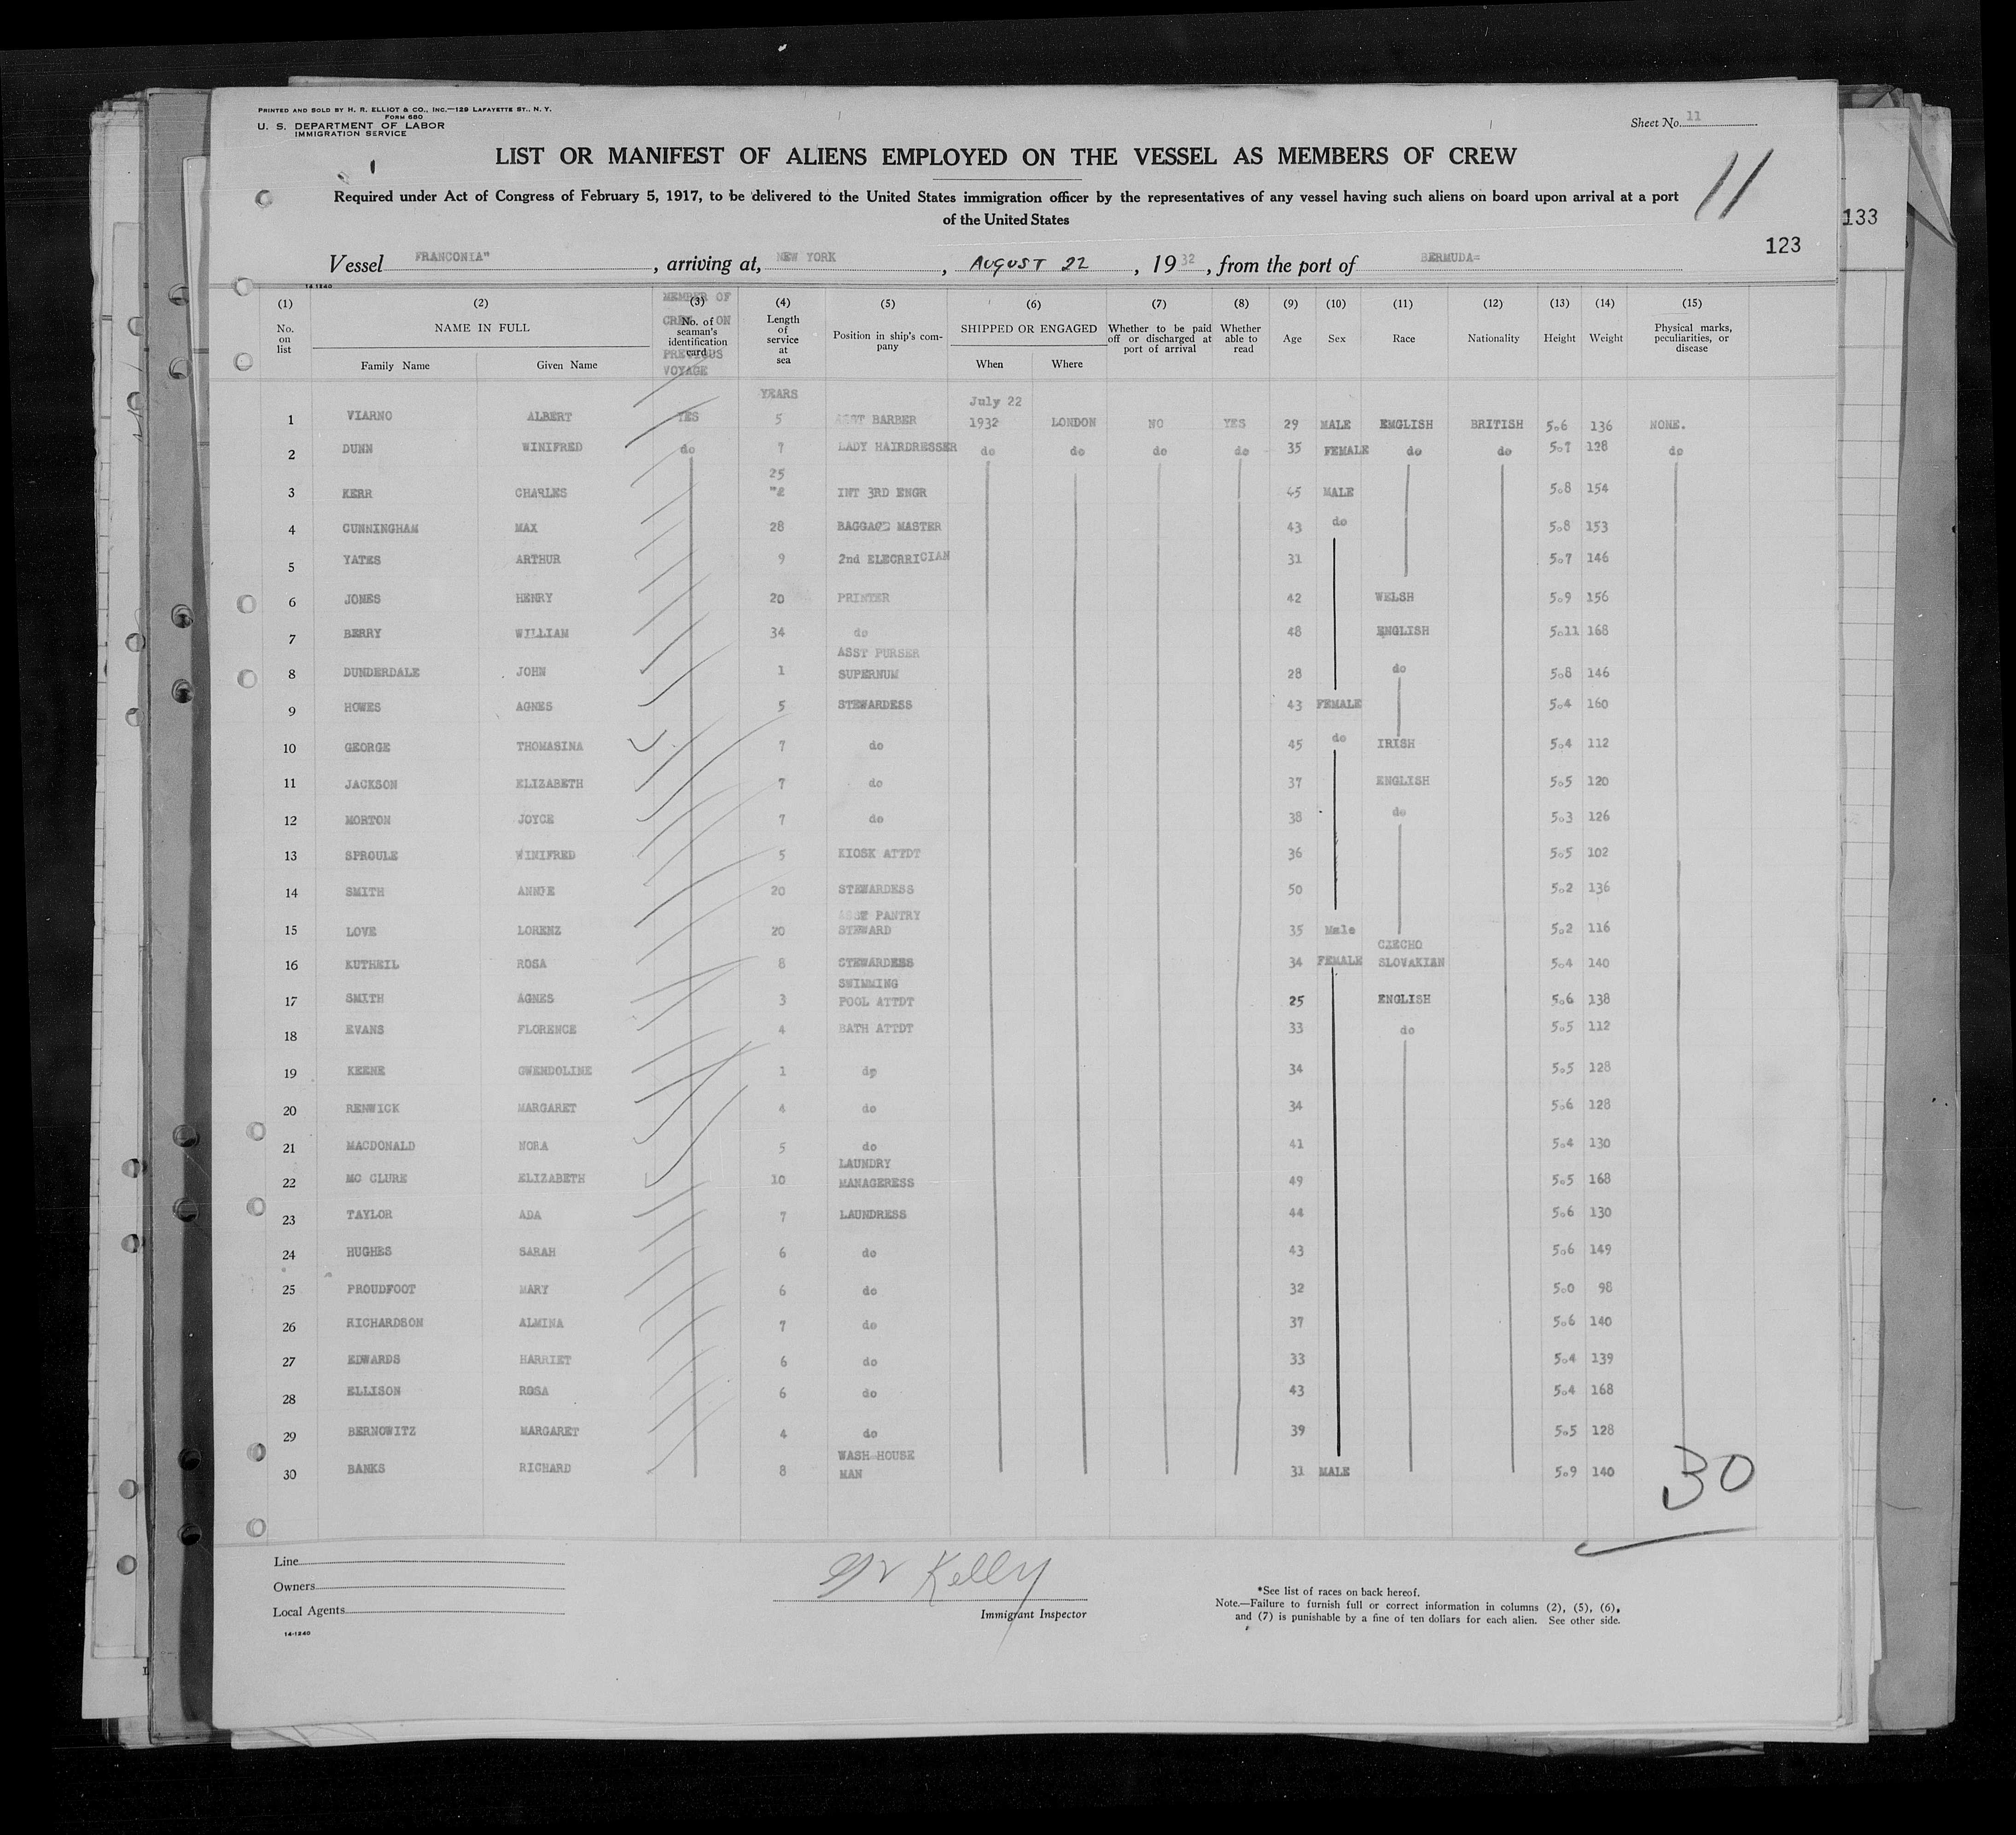 PRINTED AND SOLD BY H. R. ELLIOT & CO., INC.—129 LAFAYETTE ST., N. Y.
FORM 680
U. S. DEPARTMENT OF LABOR
IMMIGRATION SERVICE
Sheet No. 11
LIST OR MANIFEST OF ALIENS EMPLOYED ON THE VESSEL AS MEMBERS OF CREW
11
Required under Act of Congress of February 5, 1917, to be delivered to the United States immigration officer by the representatives of any vessel having such aliens on board upon arrival at a port
of the United States
133
123
Vessel FRANCONIA", arriving at, NEW YORK, AUGUST 22, 1932, from the port of BERMUDA=
14 1240
(1) (2) (3) (4) (5) (6) (7) (8) (9) (10) (11) (12) (13) (14) (15)
No. on list NAME IN FULL Family Name Given Name No. of seaman's identification card MEMBER OF CREW ON PREVIOUS VOYAGE Length of service at sea Position in ship's company SHIPPED OR ENGAGED When Where Whether to be paid off or discharged at port of arrival Whether able to read Age Sex Race Nationality Height Weight Physical marks, peculiarities, or disease
YEARS July 22
1 VIARNO ALBERT YES 5 ASST BARBER 1932 LONDON NO YES 29 MALE ENGLISH BRITISH 5.6 136 NONE.
2 DUNN WINIFRED do 7 LADY HAIRDRESSER do do do do 35 FEMALE do do 5.7 128 do
25
3 KERR CHARLES INT 3RD ENGR 45 MALE 5.8 154
4 CUNNINGHAM MAX 28 BAGGAGE MASTER 43 do 5.8 153
5 YATES ARTHUR 9 2nd ELECRRICIAN 31 5.7 146
6 JONES HENRY 20 PRINTER 42 WELSH 5.9 156
7 BERRY WILLIAM 34 do 48 ENGLISH 5.11 168
ASST PURSER
8 DUNDERDALE JOHN 1 SUPERNUM 28 do 5.8 146
9 HOWES AGNES 5 STEWARDESS 43 FEMALE 5.4 160
10 GEORGE THOMASINA 7 do 45 do IRISH 5.4 112
11 JACKSON ELIZABETH 7 do 37 ENGLISH 5.5 120
12 MORTON JOYCE 7 do 38 do 5.3 126
13 SPROULE WINIFRED 5 KIOSK ATTDT 36 5.5 102
14 SMITH ANNIE 20 STEWARDESS 50 5.2 136
ASST PANTRY
15 LOVE LORENZ 20 STEWARD 35 Male 5.2 116
CZECHO
16 KUTHEIL ROSA 8 STEWARDESS 34 FEMALE SLOVAKIAN 5.4 140
SWIMMING
17 SMITH AGNES 3 POOL ATTDT 25 ENGLISH 5.6 138
18 EVANS FLORENCE 4 BATH ATTDT 33 do 5.5 112
19 KEENE GWENDOLINE 1 do 34 5.5 128
20 RENWICK MARGARET 4 do 34 5.6 128
21 MACDONALD NORA 5 do 41 5.4 130
LAUNDRY
22 MC CLURE ELIZABETH 10 MANAGERESS 49 5.5 168
23 TAYLOR ADA 7 LAUNDRESS 44 5.6 130
24 HUGHES SARAH 6 do 43 5.6 149
25 PROUDFOOT MARY 6 do 32 5.0 98
26 RICHARDSON ALMINA 7 do 37 5.6 140
27 EDWARDS HARRIET 6 do 33 5.4 139
28 ELLISON ROSA 6 do 43 5.4 168
29 BERNOWITZ MARGARET 4 do 39 5.5 128
WASH-HOUSE
30 BANKS RICHARD 8 MAN 31 MALE 5.9 140
30
Line
Owners
Local Agents
14-1240
Kelly
Immigrant Inspector
*See list of races on back hereof.
Note.—Failure to furnish full or correct information in columns (2), (5), (6),
and (7) is punishable by a fine of ten dollars for each alien. See other side.